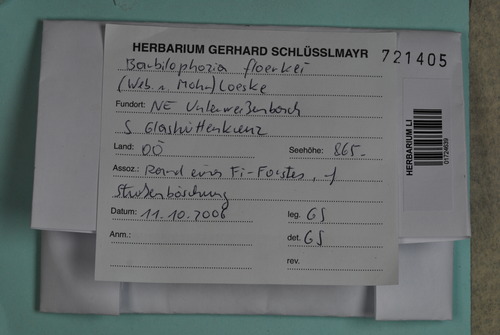 HERBARIUM GERHARD SCHLÜSSLMAYR
721405
Barbilophozia floerkei
(Web. u. Mohr) Loeske
Fundort: NE Unterweißenbach
S Glashüttenkreuz
Land: OÖ Seehöhe: 865.-
Assoz.: Rand eines Fi-Forstes, auf
Straßenböschung
Datum: 11.10.2006 leg. GS
Anm.: det. GS
rev.
HERBARIUM LI